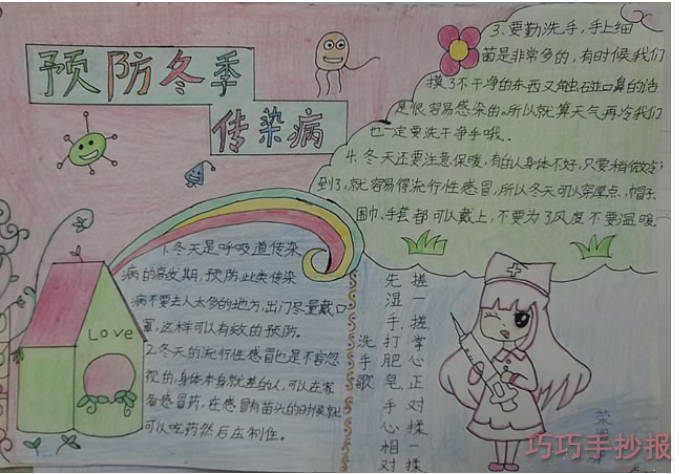 预防冬季
传染病
1.冬天是呼吸道传染
病的高发期，预防此类传染
病不要去人太多的地方，出门尽量戴口
罩，这样可以有效的预防。
2.冬天的流行性感冒也是不容忽
视的，身体本身就差的人，可以在家
备感冒药，在感冒有苗头的时候就
可以吃药然后压制住。
Love
3.要勤洗手，手上细
菌是非常多的，有时候我们
摸了不干净的东西又触碰口鼻的话
是很容易感染的。所以就算天气再冷我们
也一定要洗干净手哦。
4.冬天还要注意保暖，有的人身体不好，只要稍微冷
到了，就容易得流行性感冒，所以冬天可以穿厚点，帽子、
围巾、手套都可以戴上，不要为了风度不要温暖
洗手歌
先湿手，打肥皂，手心相对
搓一搓，掌心正对揉一揉
巧巧手抄报